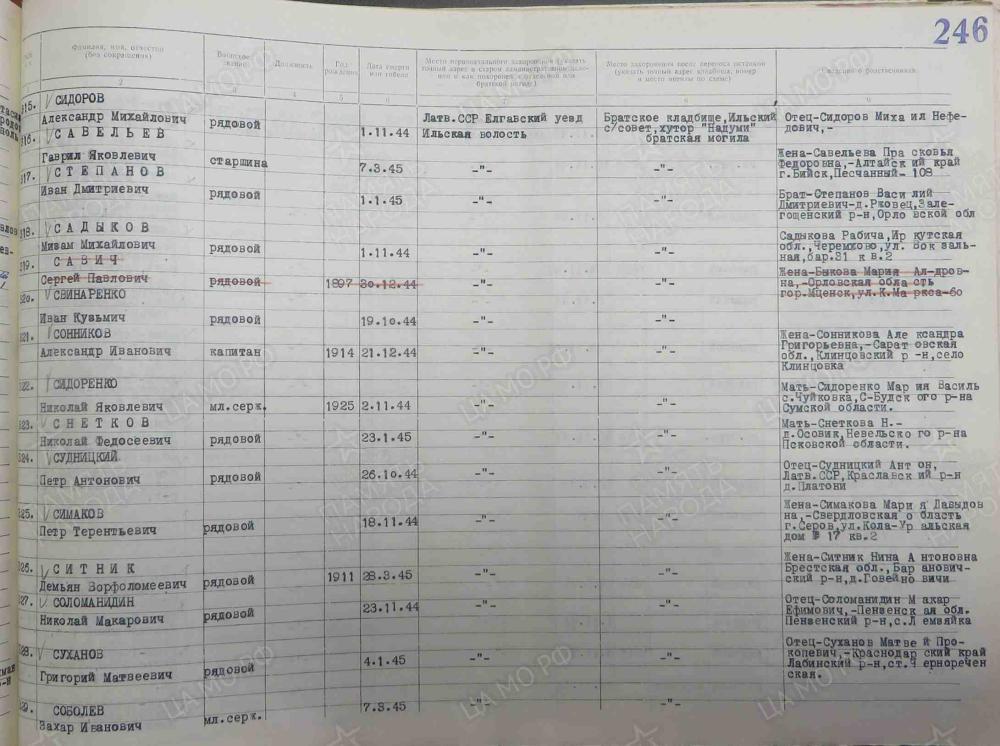 246
Фамилия, имя, отчество
(без сокращения)
Воинское
звание
Должность
Год
рождения
Дата смерти
или гибели
Место первоначального захоронения (указать
точный адрес в старом административном
и как похоронен, в отдельной или
братской могиле)
Место захоронения после переноса останков
(указать точный адрес кладбища, номер
и место могилы по схеме)
Сведения о родственниках
2 4 5 6 7 8 9
315. СИДОРОВ
Александр Михайлович рядовой 1.11.44 Латв.ССР Елгавский уезд Братское кладбище,Ильский Отец-Сидоров Миха ил Нефе-
Ильская волость с/совет,хутор "Надуми" дович,-
братская могила
316. САВЕЛЬЕВ
Гаврил Яковлевич старшина 7.3.45 -"- -"- Жена-Савельева Пра сковья
Федоровна,-Алтайск ий край
г.Бийск,Песчанный- 108
317. СТЕПАНОВ
Иван Дмитриевич рядовой 1.1.45 -"- -"- Брат-Степанов Васи лий
Дмитриевич-д.Ржовец,Зале-
гощенский р-н,Орло вской обл
318. САДЫКОВ
Мивам Михайлович рядовой 1.11.44 -"- -"- Садыкова Рабича,Ир кутская
обл.,Черемхово,ул. Вок заль-
ная,бар.31 к в.2
319. САВИЧ
Сергей Павлович рядовой 1897 30.12.44 -"- -"- Жена-Быкова Мария Ал-дров-
на,-Орловская обла сть
гор.Мценск,ул.К.Ма ркса-60
320. СВИНАРЕНКО
Иван Кузьмич рядовой 19.10.44 -"- -"-
321. СОННИКОВ
Александр Иванович капитан 1914 21.12.44 -"- -"- Жена-Сонникова Але ксандра
Григорьевна,-Сарат овская
обл.,Клинцовский р -н,село
Клинцовка
322. СИДОРЕНКО
Николай Яковлевич мл.серж. 1925 2.11.44 -"- -"- Мать-Сидоренко Мар ия Василь
с.Чуйковка,С-Будск ого р-на
Сумской области.
323. СНЕТКОВ
Николай Федосеевич рядовой 23.1.45 -"- -"- Мать-Снеткова Н.-
д.Осовик,Невельско го р-на
Псковской области.
324. СУДНИЦКИЙ
Петр Антонович рядовой 26.10.44 -"- -"- Отец-Судницкий Ант он,
Латв.ССР,Краславск ий р-н
д.Платони
325. СИМАКОВ
Петр Терентьевич рядовой 18.11.44 -"- -"- Жена-Симакова Мари я Давыдов
на,-Свердловская о бласть
г.Серов,ул.Кола-Ур альская
дом № 17 кв.2
326. СИТНИК
Демьян Ворфоломеевич рядовой 1911 28.3.45 -"- -"- Жена-Ситник Нина А нтоновна
Брестская обл.,Бар анович-
ский р-н,д.Говейно вичи
327. СОЛОМАНИДИН
Николай Макарович рядовой 23.11.44 -"- -"- Отец-Соломанидин М акар
Ефимович,-Пензенск ая обл.
Пензенский р-н,с.Л емзяйка
328. СУХАНОВ
Григорий Матвеевич рядовой 4.1.45 -"- -"- Отец-Суханов Матве й Про-
копевич,-Краснодар ский край
Лабинский р-н,ст.Ч ерноречен
ская.
329. СОБОЛЕВ
Захар Иванович мл.серж. 7.3.45 -"- -"-